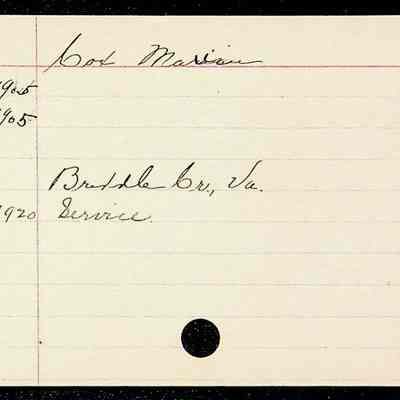 Cox Marion
1905
1905
Briddle Cr., Va.
1920 Service.